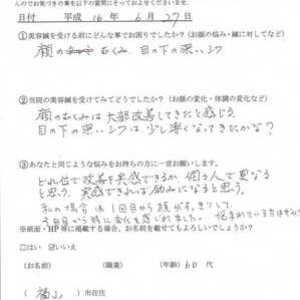 んのでお気づきの事を以下の質問にそっておよせくださいませ。
日付 平成 16年 6月 27日
①美容鍼を受ける前にどんな事でお困りでしたか?(お顔の悩み・鍼に対してなど)
顔の むくみ 目の下の深いシワ
②当院の美容鍼を受けてみてどうでしたか?(お顔の変化・体調の変化など)
顔のむくみは大部改善してきたと感じる
目の下の深いシワは少し薄くなってきたかな?
③あなたと同じような悩みをお持ちの方に一言お願いします。
どれ位で改善を実感できるか、個々人で異なる
と思う。実感できれば励みになると思う。
私の場合は1回目から顔がすっきりして
※紙面・HP等に掲載する場合、お名前を載せてもよろしいでしょうか?
□はい ☑いいえ
(お名前) (職業) (年齢)60代
( 福山 )市在住